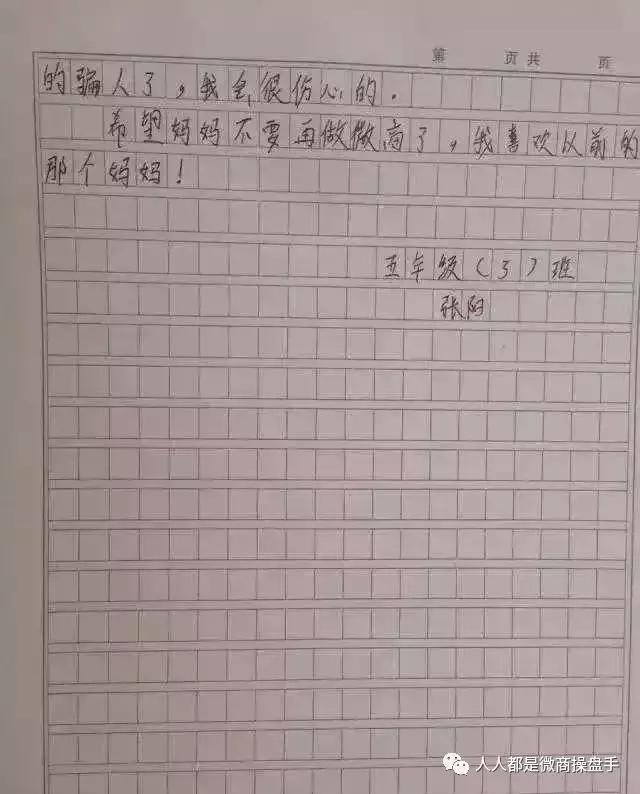 第 页 共 页
的骗人了，我会很伤心的.
希望妈妈不要再做微商了，我喜欢以前的
那个妈妈！
五年级（3）班
张阳
人人都是微商操盘手